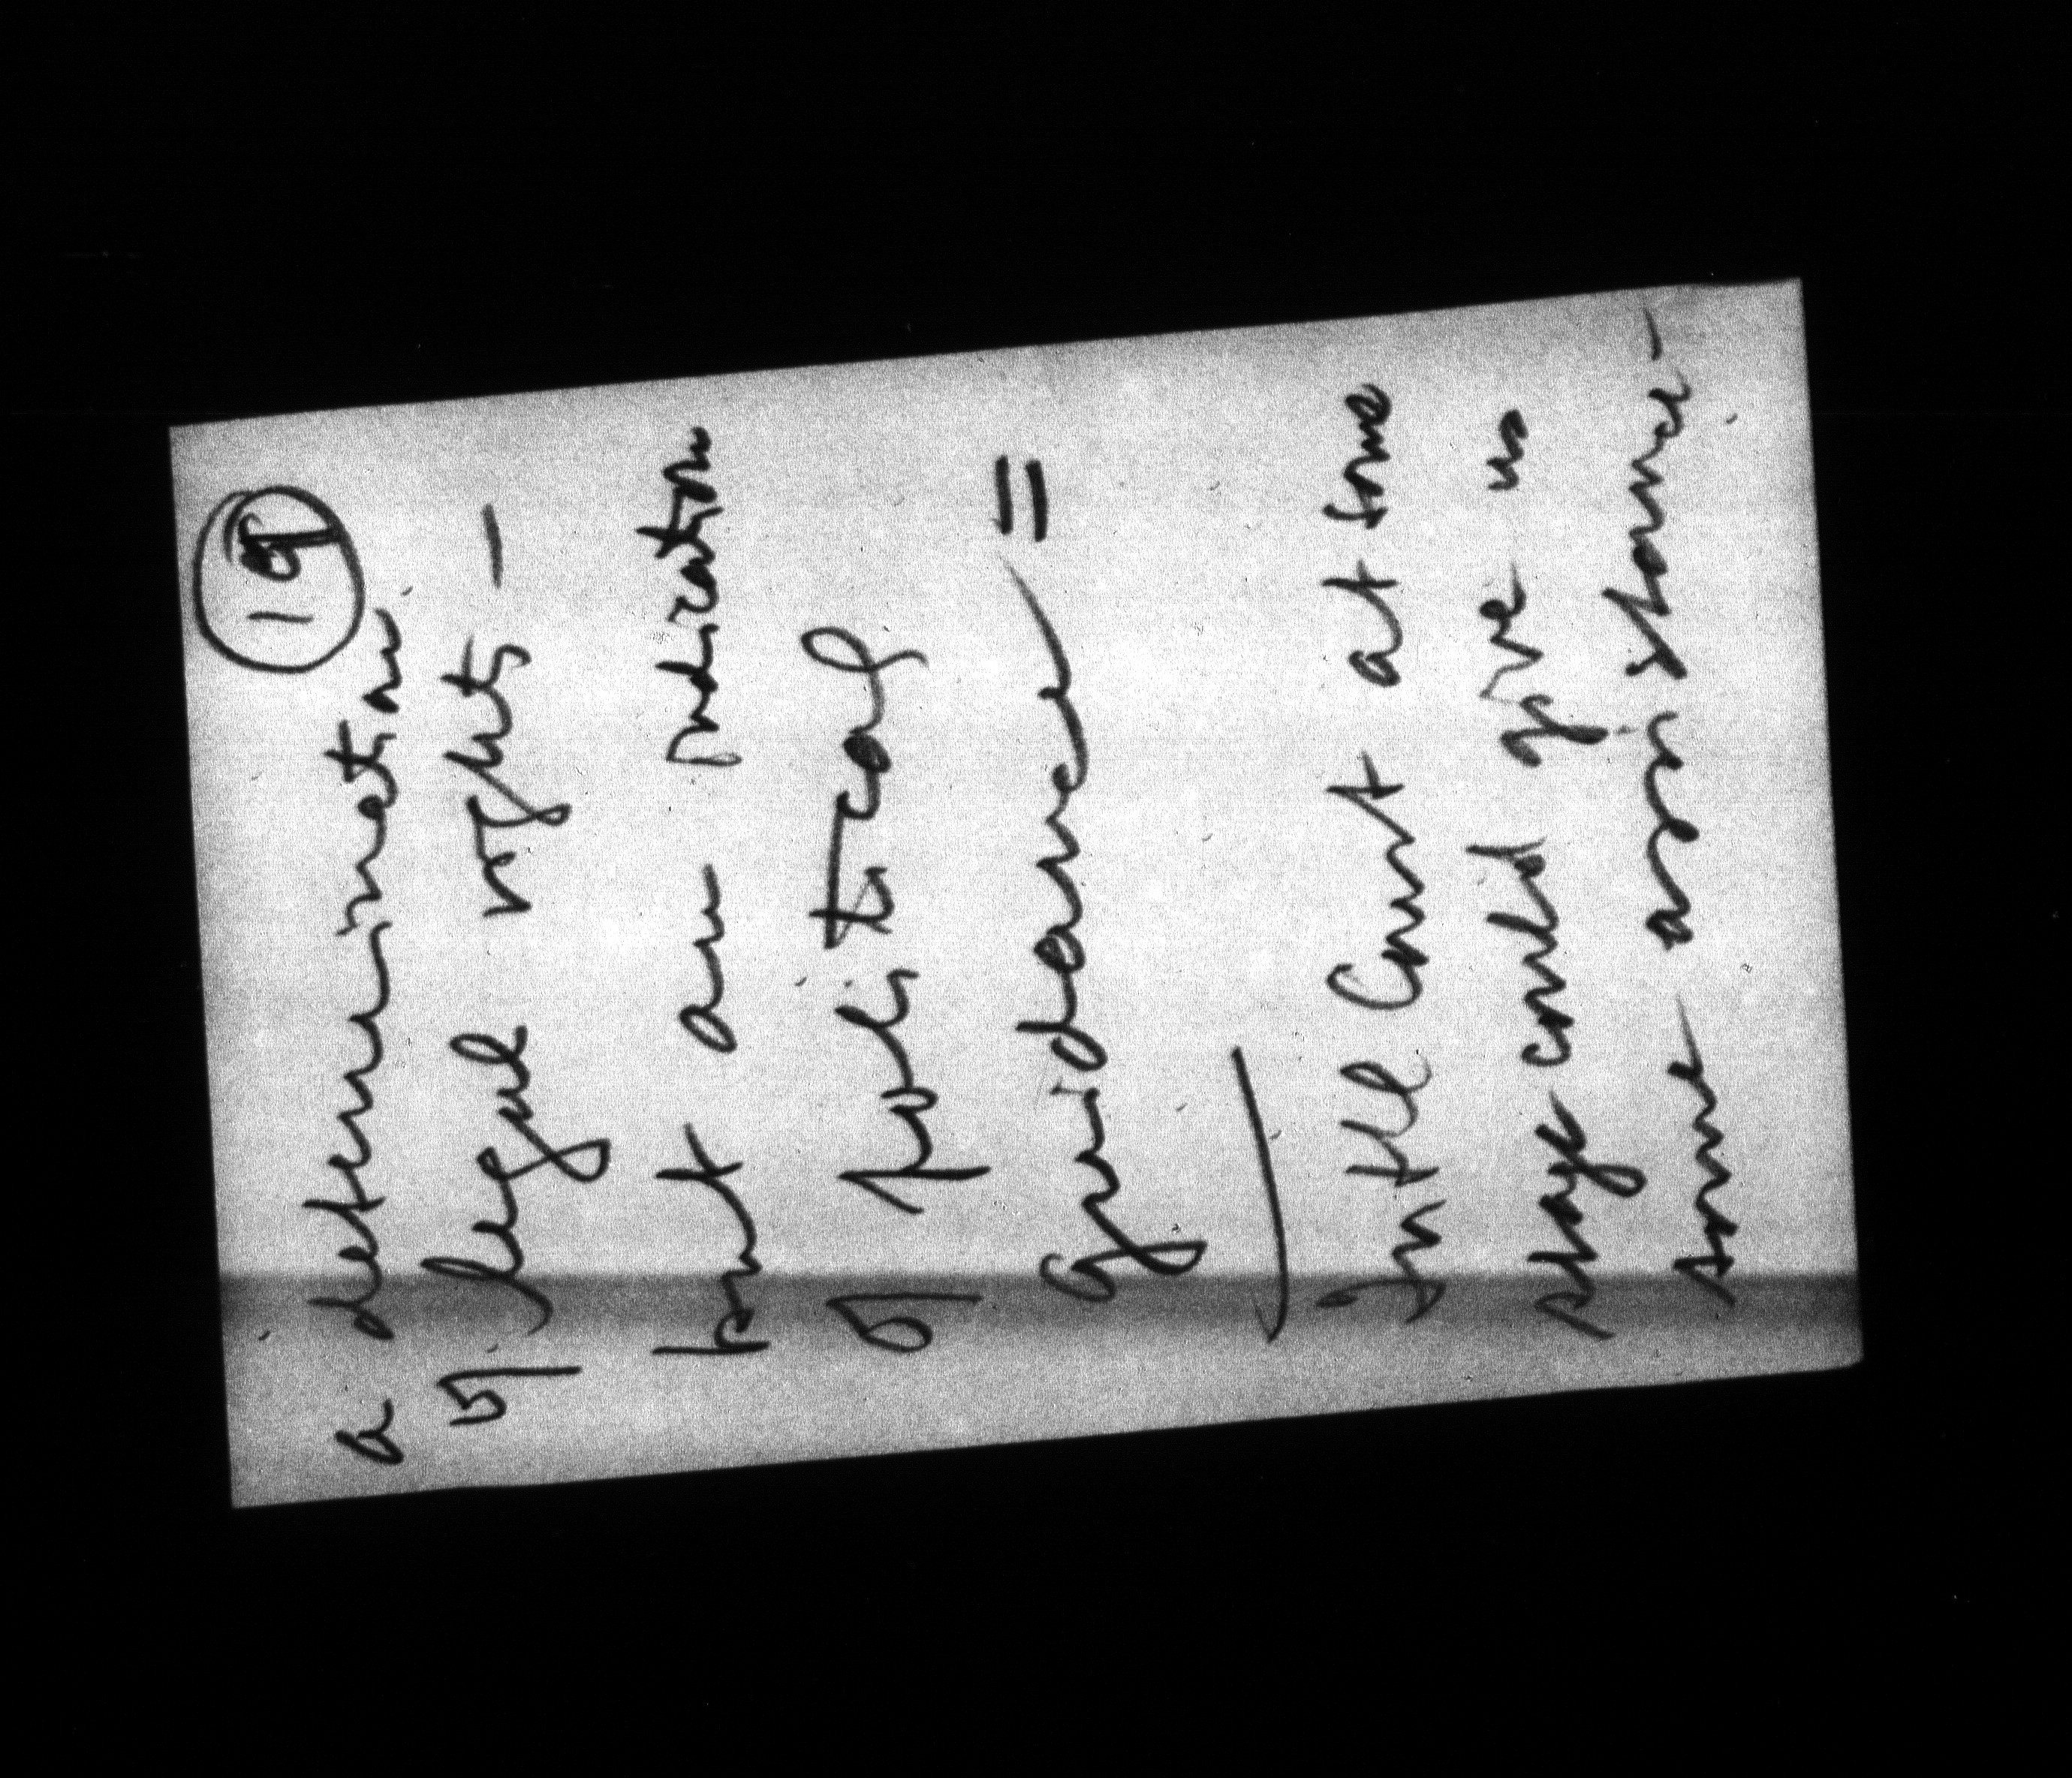 19
a determination
of legal rights —
but an indication
of political
guidance =
Intl Court at some
stage could give us
some assistance —